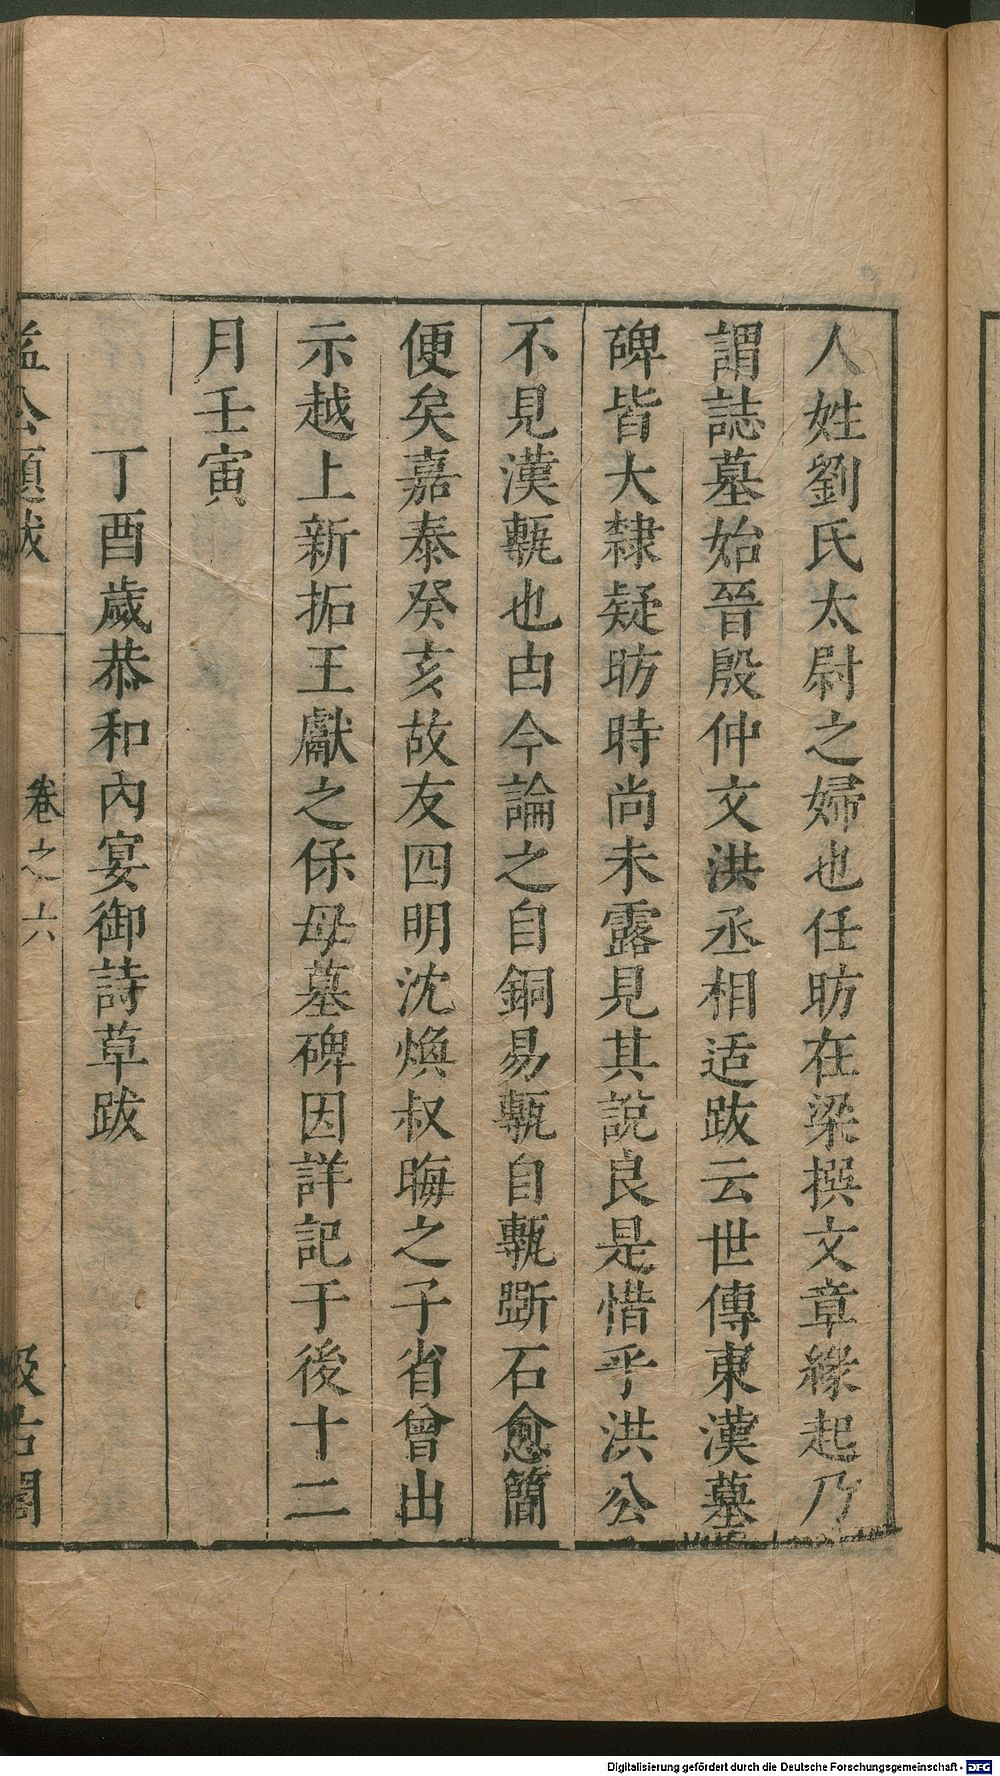 人姓劉氏太尉之婦也任昉在梁撰文章緣起乃
謂誌墓始晉殷仲文洪丞相适跋云世傳東漢墓
碑皆大隸疑昉時尚未露見其說良是惜乎洪公
不見漢甎也古今論之自銅易甎自甎斵石愈簡
便矣嘉泰癸亥故友四明沈煥叔晦之子省曾出
示越上新拓王獻之保母墓碑因詳記于後十二
月壬寅
丁酉歲恭和內宴御詩草跋
益公題跋 卷之六 汲古閣
Digitalisierung gefördert durch die Deutsche Forschungsgemeinschaft - DFG